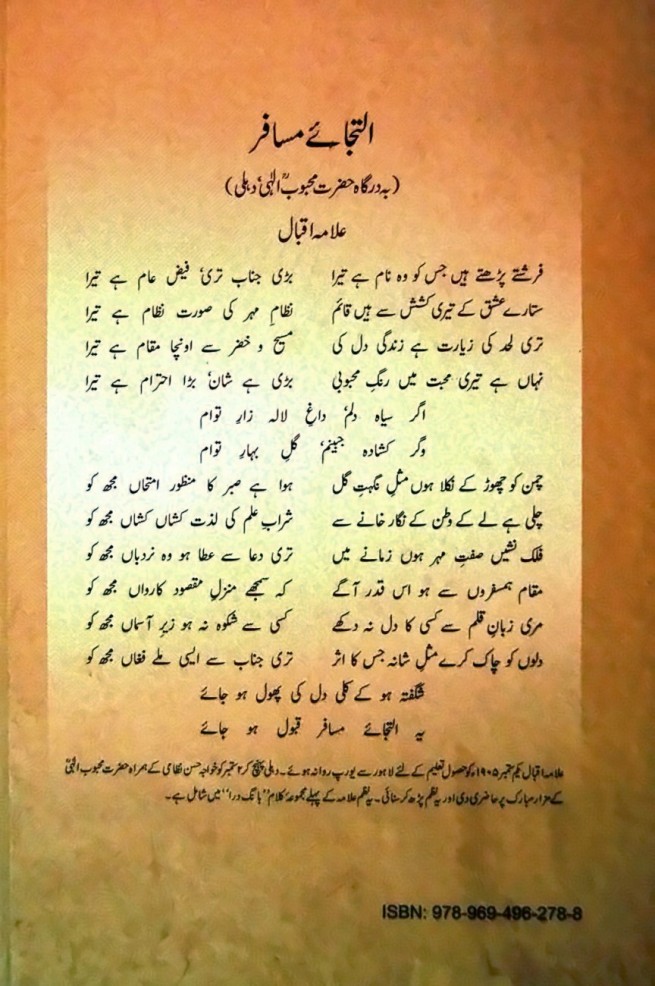 التجائے مسافر
(بہ درگاہ حضرت محبوبِ الٰہیؒ دہلی)
علامہ اقبال
فرشتے پڑھتے ہیں جس کو وہ نام ہے تیرا بڑی جناب تری، فیض عام ہے تیرا
ستارے عشق کے تیری کشش سے ہیں قائم نظامِ مہر کی صورت نظام ہے تیرا
تری لحد کی زیارت ہے زندگی دل کی مسیح و خضر سے اونچا مقام ہے تیرا
نہاں ہے تیری محبت میں رنگِ محبوبی بڑی ہے شان، بڑا احترام ہے تیرا
اگر سیاہ دلم، داغِ لالہ زارِ توام
وگر کشادہ جبینم، گلِ بہارِ توام
چمن کو چھوڑ کے نکلا ہوں مثلِ نکہتِ گل ہوا ہے صبر کا منظور امتحاں مجھ کو
چلی ہے لے کے وطن کے نگار خانے سے شرابِ علم کی لذت کشاں کشاں مجھ کو
فلک نشیں صفتِ مہر ہوں زمانے میں تری دعا سے عطا ہو وہ نردباں مجھ کو
مقام ہمسفروں سے ہو اس قدر آگے کہ سمجھے منزلِ مقصود کارواں مجھ کو
مری زبانِ قلم سے کسی کا دل نہ دکھے کسی سے شکوہ نہ ہو زیرِ آسماں مجھ کو
دلوں کو چاک کرے مثلِ شانہ جس کا اثر تری جناب سے ایسی ملے فغاں مجھ کو
شگفتہ ہو کے کلی دل کی پھول ہو جائے
یہ التجائے مسافر قبول ہو جائے
علامہ اقبال یکم ستمبر ۱۹۰۵ء کو حصول تعلیم کے لئے لاہور سے یورپ روانہ ہوئے۔ دہلی پہنچ کر ۲ ستمبر کو خواجہ حسن نظامی کے ہمراہ حضرت محبوب الٰہیؒ
کے مزار مبارک پر حاضری دی اور یہ نظم پڑھ کر سنائی۔ یہ نظم علامہ کے پہلے مجموعۂ کلام "بانگ درا" میں شامل ہے۔
ISBN: 978-969-496-278-8